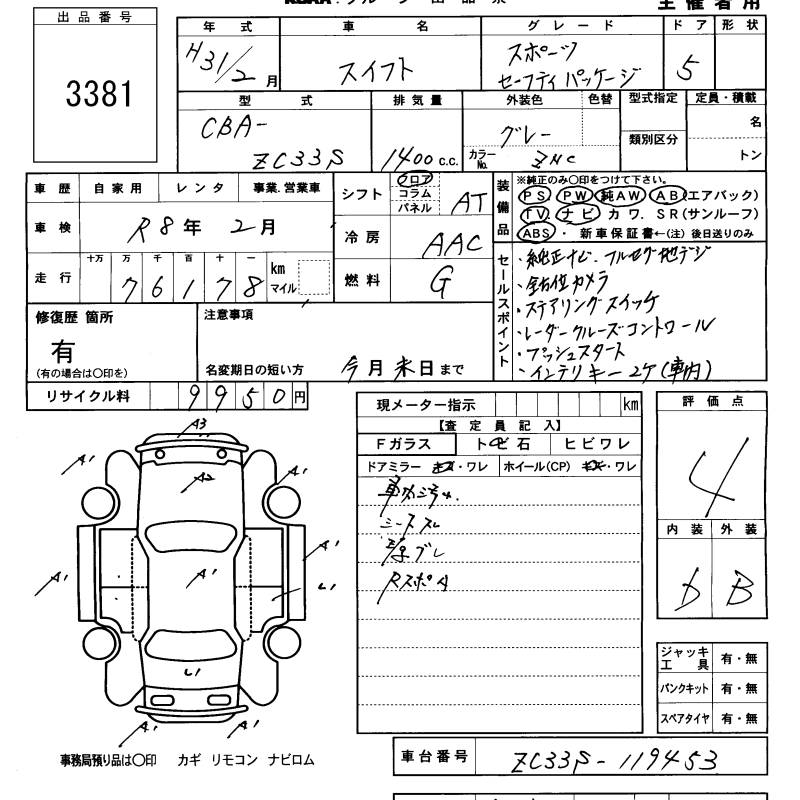 出品番号
3381
主催者用
年式 車名 グレード ドア 形状
H31/2月 スイフト スポーツ セーフティパッケージ 5
型式 排気量 外装色 色替 型式指定 定員・積載
CBA-
ZC33S 1400 c.c. グレー
カラーNo. ZNC
類別区分
名
トン
車歴 自家用 レンタ 事業.営業車
車検 R8年 2月
走行 十万 万 千 百 十 一
76178 km マイル
シフト フロア コラム パネル AT
冷房 AAC
燃料 G
装備品
※純正のみ○印をつけて下さい。
PS PW 純AW AB(エアバック)
TV. ナビ カワ. SR(サンルーフ)
ABS ・ 新車保証書←(注)後日送りのみ
セールスポイント
・純正ナビ.フルセグ地デジ
・全方位カメラ
・ステアリングスイッチ
・レーダークルーズコントロール
・プッシュスタート
・インテリキー2ケ(車内)
修復歴 箇所
有
(有の場合は○印を)
注意事項
名変期日の短い方 今月末日まで
リサイクル料 9950円
現メーター指示 km
【査定員記入】
Fガラス トビ石 ヒビワレ
ドアミラー キズ・ワレ ホイール(CP) キズ・ワレ
シートスレ
RスポA
評価点
4
内装 外装
D B
ジャッキ工具 有・無
パンクキット 有・無
スペアタイヤ 有・無
A3
A1 A2 A1
A1 A1 A1 L1
L1
A1 A1
事務局預り品は○印 カギ リモコン ナビロム
車台番号 ZC33S-119453